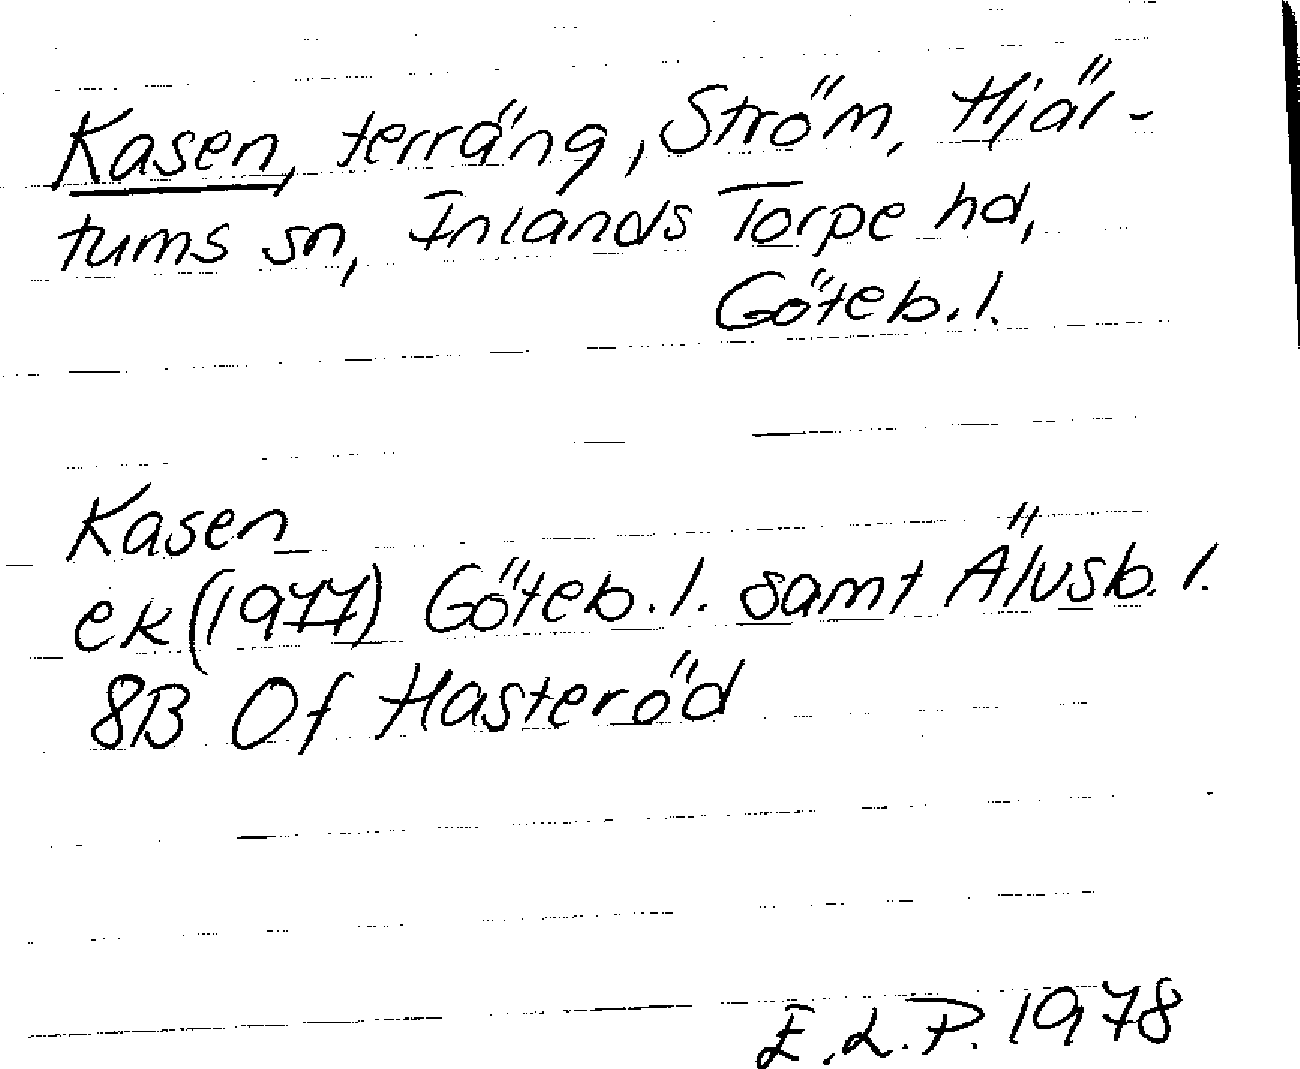 Kasen, terräng, Ström, Hjäl-
tums sn, Inlands Torpe hd,
Göteb. l.
Kasen
ek (1977) Göteb. l. samt Älvsb. l.
8B 0f Hasteröd
E.L.P. 1978